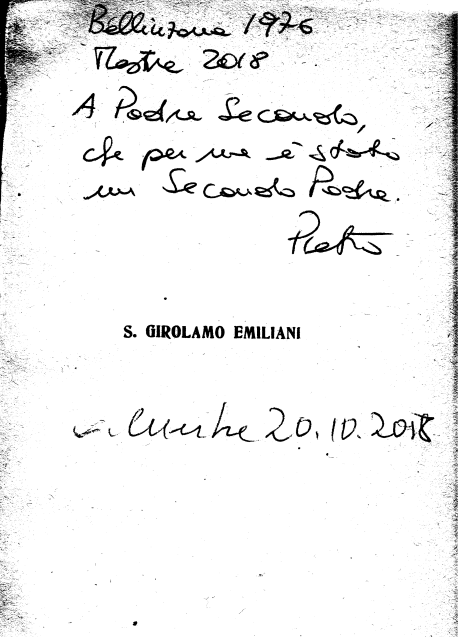 Bellinzona 1976
Mestre 2018
A Padre Secondo,
che per me è stato
un Secondo Padre.
Pietro
S. GIROLAMO EMILIANI
Mestre 20.10.2018